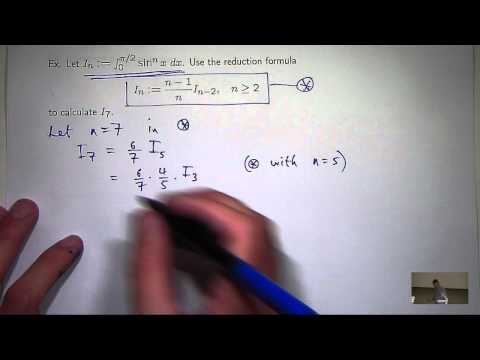 Ex. Let Iₙ := ∫₀^{π/2} sinⁿ x dx. Use the reduction formula
Iₙ := \frac{n−1}{n} Iₙ₋₂, n ≥ 2 ⊛
to calculate I₇.
Let n=7 in ⊛
I₇ = \frac{6}{7} I₅
= \frac{6}{7} · \frac{4}{5} · I₃ (⊛ with n=5)